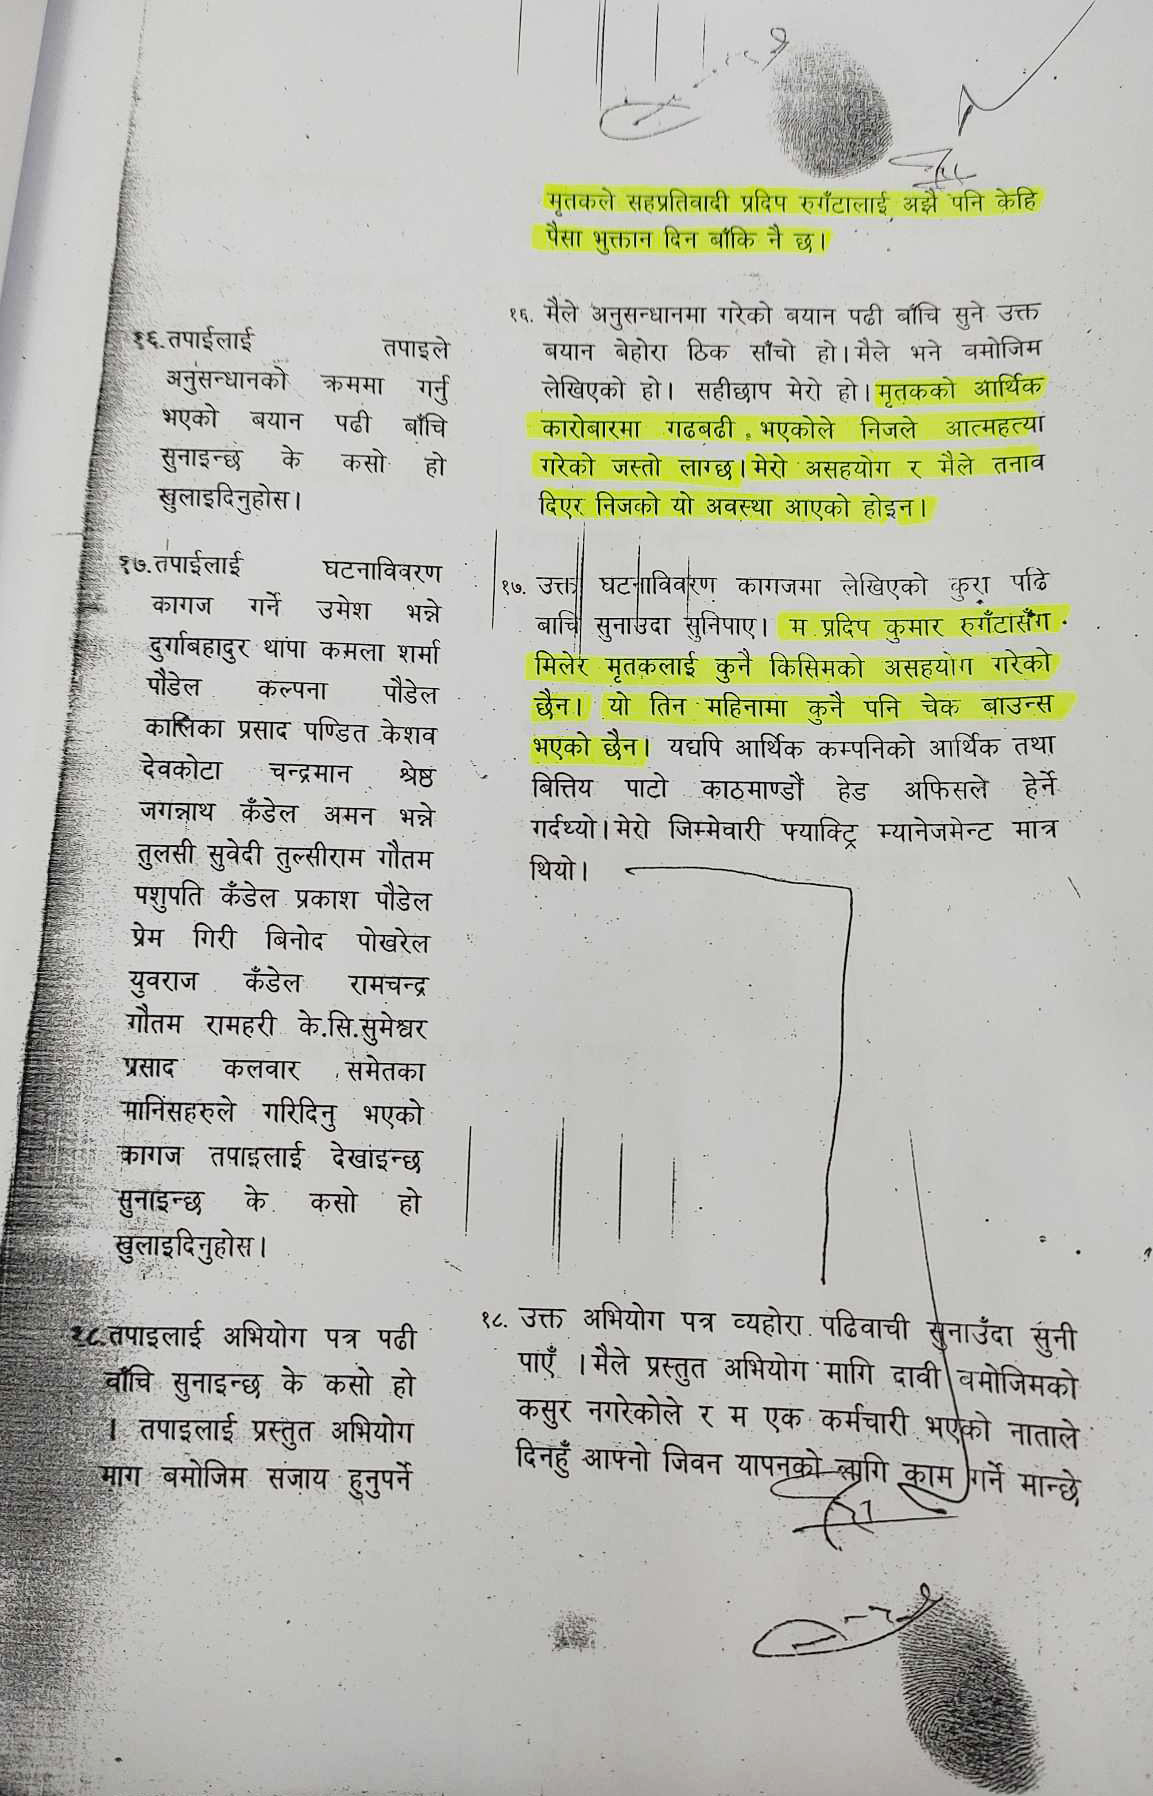 मृतकले सहप्रतिवादी प्रदिप रुगँटालाई अझै पनि केहि
पैसा भुक्तान दिन बाँकि नै छ।
१६.तपाईलाई तपाइले
अनुसन्धानको क्रममा गर्नु
भएको बयान पढी बाँचि
सुनाइन्छ के कसो हो
खुलाइदिनुहोस।
१६. मैले अनुसन्धानमा गरेको बयान पढी बाँचि सुने उक्त
बयान बेहोरा ठिक साँचो हो।मैले भने बमोजिम
लेखिएको हो। सहीछाप मेरो हो।मृतकको आर्थिक
कारोबारमा गढबढी भएकोले निजले आत्महत्या
गरेको जस्तो लाग्छ।मेरो असहयोग र मैले तनाव
दिएर निजको यो अवस्था आएको होइन।
१७.तपाईलाई घटनाविवरण
कागज गर्ने उमेश भन्ने
दुर्गाबहादुर थापा कमला शर्मा
पौडेल कल्पना पौडेल
कालिका प्रसाद पण्डित केशव
देवकोटा चन्द्रमान श्रेष्ठ
जगन्नाथ कँडेल अमन भन्ने
तुलसी सुवेदी तुल्सीराम गौतम
पशुपति कँडेल प्रकाश पौडेल
प्रेम गिरी बिनोद पोखरेल
युवराज कँडेल रामचन्द्र
गौतम रामहरी के.सि.सुमेश्वर
प्रसाद कलवार समेतका
मानिसहरुले गरिदिनु भएको
कागज तपाइलाई देखाइन्छ
सुनाइन्छ के कसो हो
खुलाइदिनुहोस।
१७. उक्त घटनाविवरण कागजमा लेखिएको कुरा पढि
बाचि सुनाउदा सुनिपाए। म प्रदिप कुमार रुगँटासँग
मिलेर मृतकलाई कुनै किसिमको असहयोग गरेको
छैन। यो तिन महिनामा कुनै पनि चेक बाउन्स
भएको छैन। यद्यपि आर्थिक कम्पनिको आर्थिक तथा
बित्तिय पाटो काठमाण्डौं हेड अफिसले हेर्ने
गर्दथ्यो।मेरो जिम्मेवारी फ्याक्ट्रि म्यानेजमेन्ट मात्र
थियो।
१८.तपाइलाई अभियोग पत्र पढी
बाँचि सुनाइन्छ के कसो हो
। तपाइलाई प्रस्तुत अभियोग
माग बमोजिम सजाय हुनुपर्ने
१८. उक्त अभियोग पत्र व्यहोरा पढिवाची सुनाउँदा सुनी
पाएँ ।मैले प्रस्तुत अभियोग मागि दावी बमोजिमको
कसुर नगरेकोले र म एक कर्मचारी भएको नाताले
दिनहुँ आफ्नो जिवन यापनको लागि काम गर्ने मान्छे